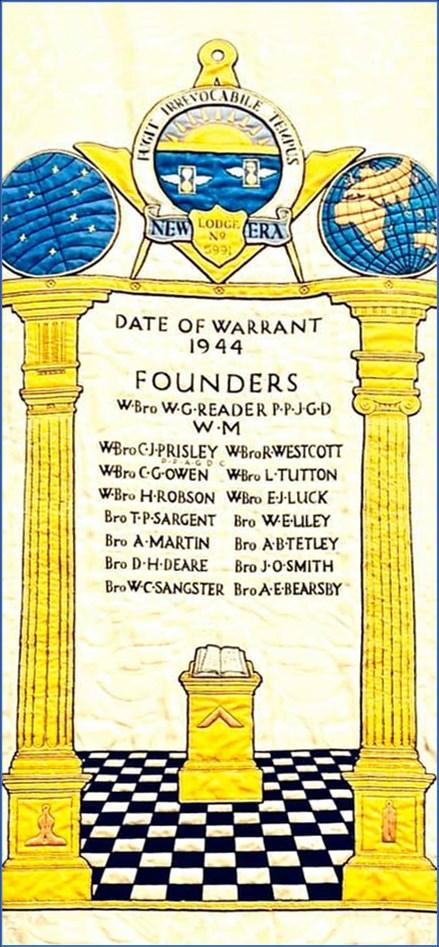 FUGIT IRREVOCABILE TEMPUS
NEW LODGE ERA
Nº
5991
DATE OF WARRANT
1944
FOUNDERS
W·Bro W·G·READER P·P·J·G·D
W·M
W·Bro C·J·PRISLEY W·Bro R·WESTCOTT
P·P·A·G·D·C
W·Bro C·G·OWEN W·Bro L·TUTTON
W·Bro H·ROBSON W·Bro E·J·LUCK
Bro T·P·SARGENT Bro W·E·LILEY
Bro A·MARTIN Bro A·B·TETLEY
Bro D·H·DEARE Bro J·O·SMITH
Bro W·C·SANGSTER Bro A·E·BEARSBY